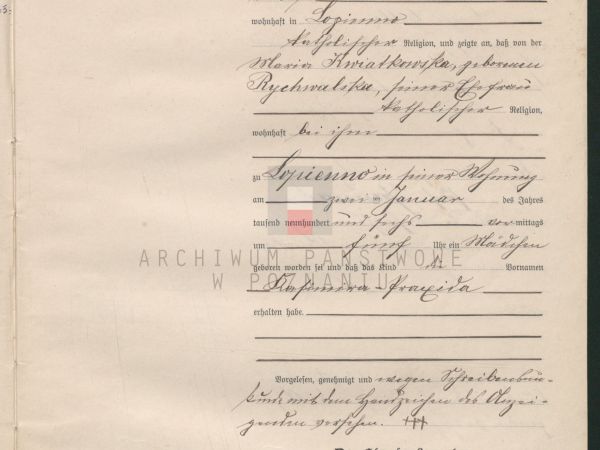 wohnhaft in Lopienno
katholischer Religion, und zeigte an, daß von der
Maria Kwiatkowska, geborenen
Rychwalska, seiner Ehefrau
katholischer Religion,
wohnhaft bei ihm
zu Lopienno in seiner Wohnung
am zwei ten Januar des Jahres
tausend neunhundert und sechs vor mittags
um fünf Uhr ein Mädchen
geboren worden sei und daß das Kind die Vornamen
Kasimira-Praxida
erhalten habe.
Vorgelesen, genehmigt und wegen Schreibenbun-
kunde mit dem Handzeichen des Anzei-
genden versehen. +++
ARCHIWUM PAŃSTWOWE
W POZNANIU